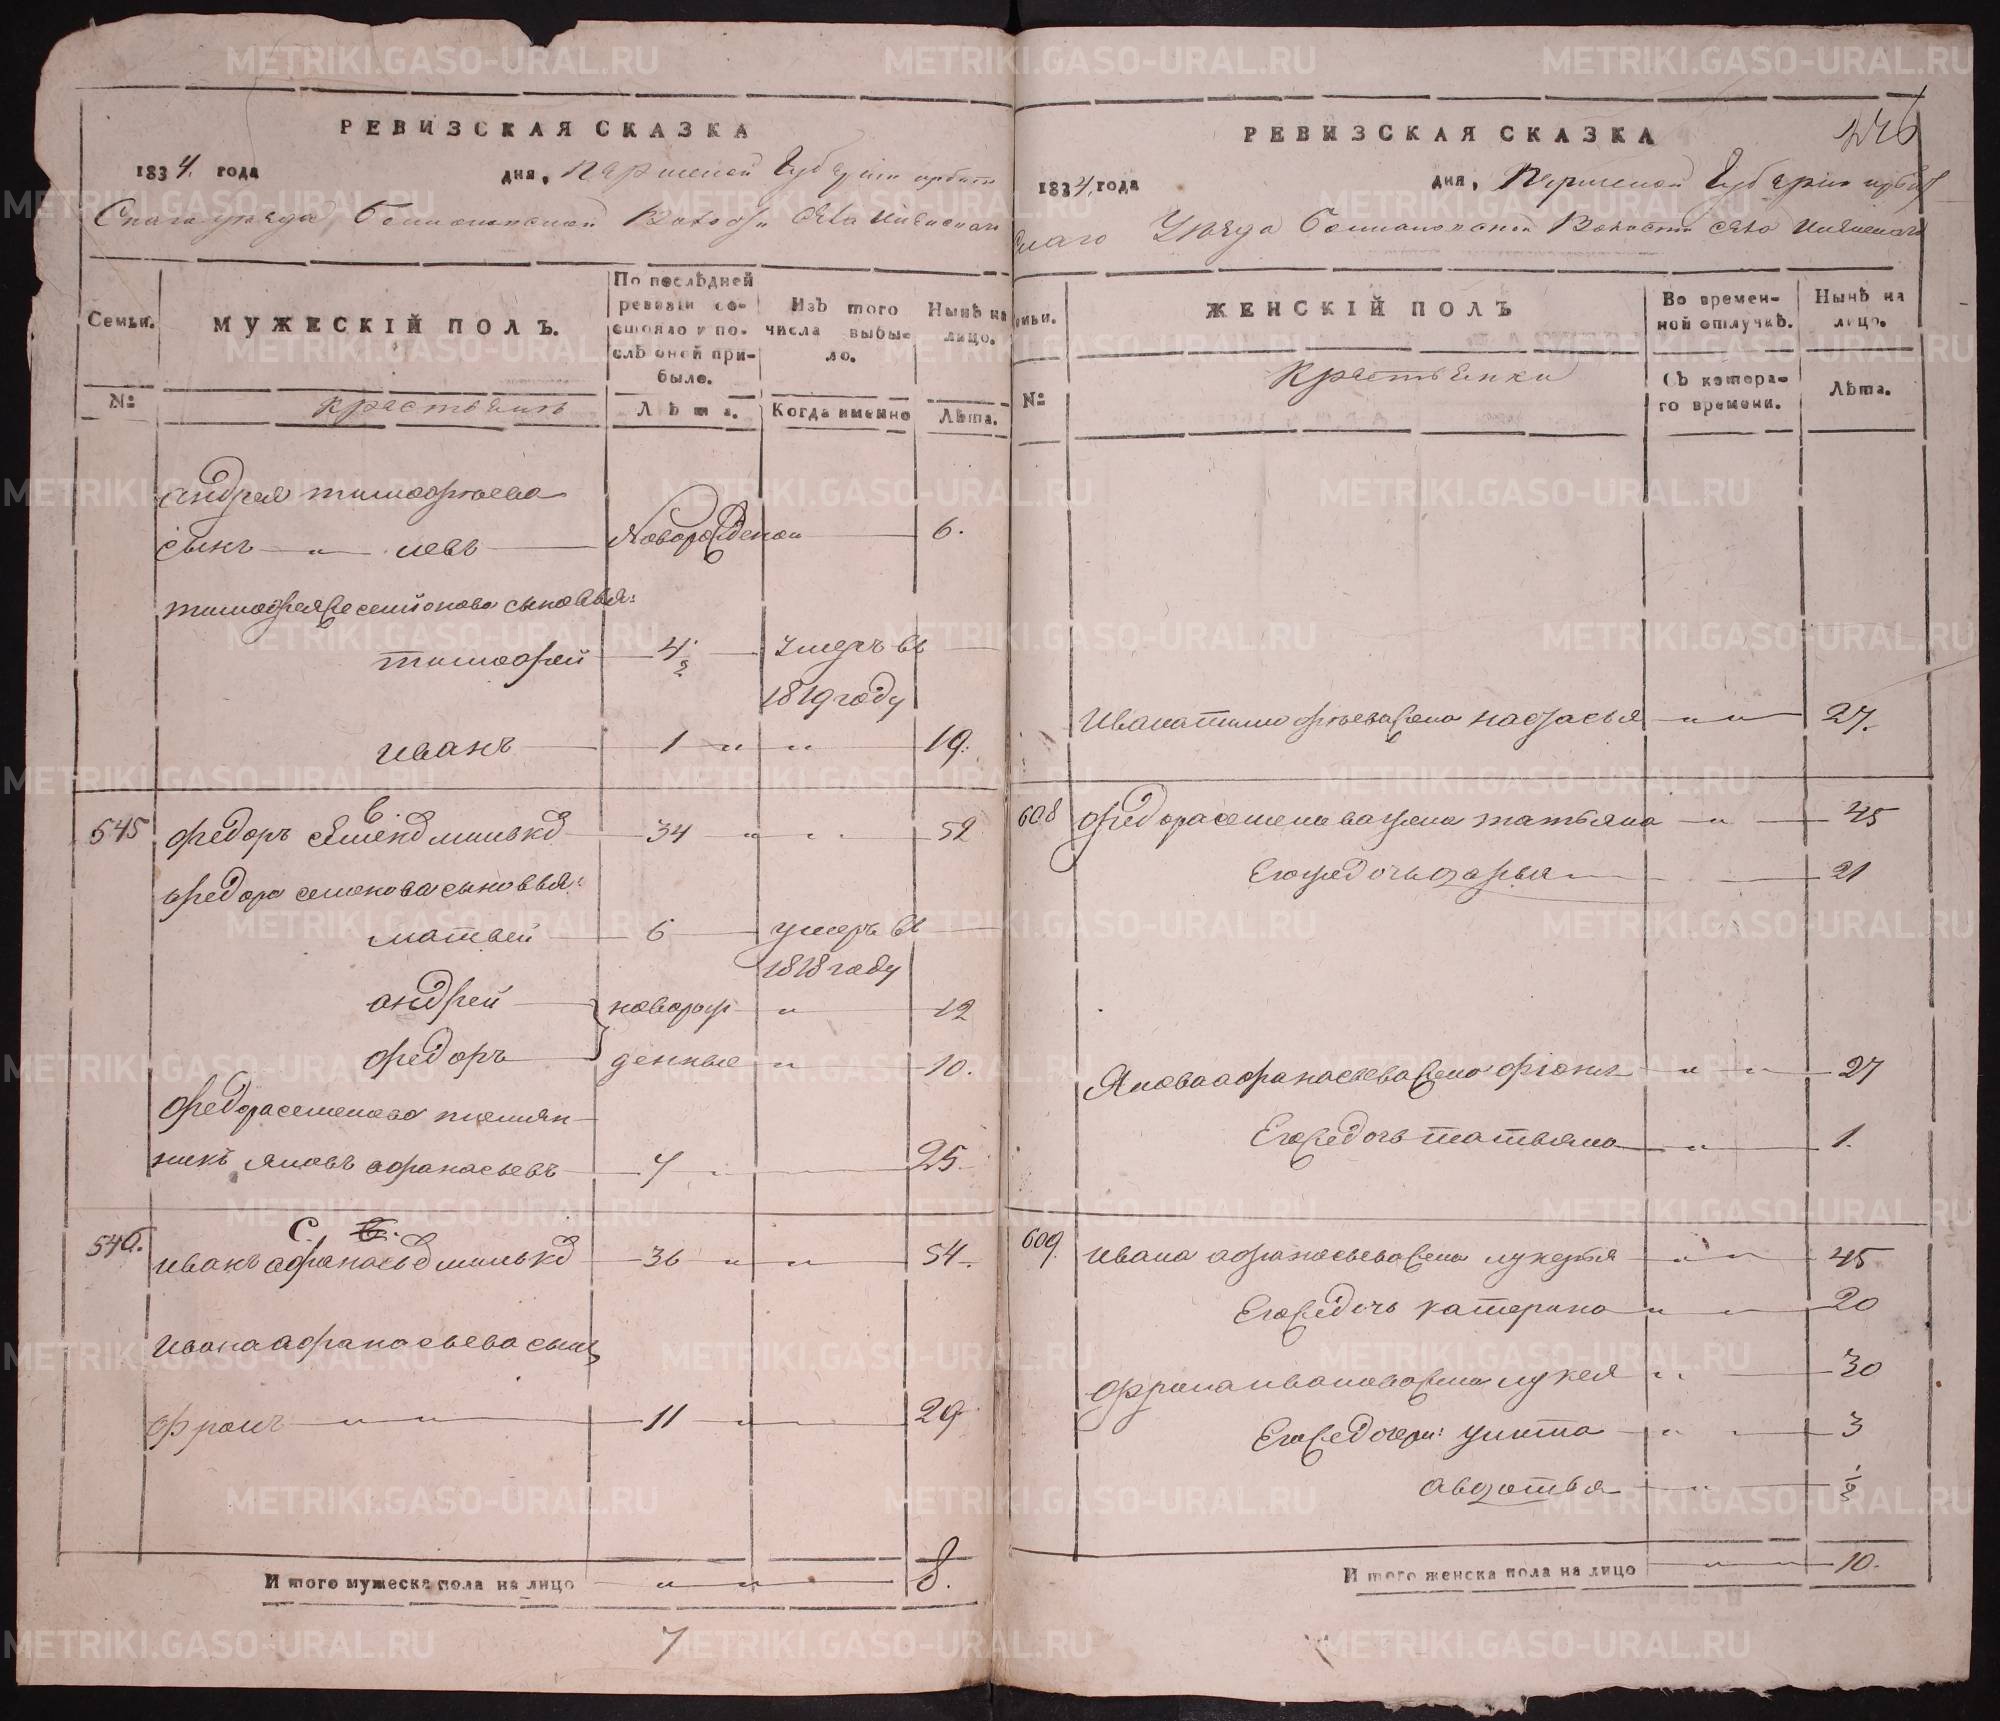 РЕВИЗСКАЯ СКАЗКА
1834. года дня, Пермской Губернии Ирбит
скаго уезда, Волости Села
Семьи.
МУЖЕСКІЙ ПОЛЪ.
По послѣдней ревизіи состояло и послѣ оной прибыло.
Изъ того числа выбыло.
Нынѣ на лицо.
№
крестьянъ
Лѣта.
Когда именно
Лѣта.
андрея тимофѣева
сынъ — „ — левъ — Новорожденой — 6.
тимофея же семионова сыновья:
тимофей — 4. — умеръ въ —
1819 году
иванъ — 1 — „ „ — 19.
545 федоръ мильковъ — 34 „ „ — 52
федора семенова сыновья:
матвей — 6 — умеръ въ —
1818 году
андрей — новорож „ — 12
федоръ — денные „ — 10.
федора семенова племян-
никъ яковъ афанасьевъ — 7 „ — 25.
С. В.
546. иванъ мильковъ — 36 „ „ — 54.
ивана афанасьева сынъ
фролъ — „ „ — 11 „ — 29.
И того мужеска пола на лицо — „ „ — 8.
7
РЕВИЗСКАЯ СКАЗКА
1834. года дня, Пермской Губернии Ирбит
скаго Уезда Волости села
ЖЕНСКІЙ ПОЛЪ
Во временной отлучкѣ.
Нынѣ на лицо.
№
Крестьянки
Съ котораго времени.
Лѣта.
Ивана тимофѣева жена настасья — „ „ — 27.
608 федора семенова жена татьяна — „ — 45
Его же дочь дарья — 21
Якова афанасьева жена — „ „ — 27
Его же дочь татьяна — „ — 1.
609. Ивана афанасьева жена лукерья — „ „ — 45
Его же дочь катерина — „ „ — 20
фрола иванова жена лукея „ — 30
Его же дочери: улита — „ „ — 3
авдотья — „ —
И того женска пола на лицо — „ „ — 10.
METRIKI.GASO-URAL.RU